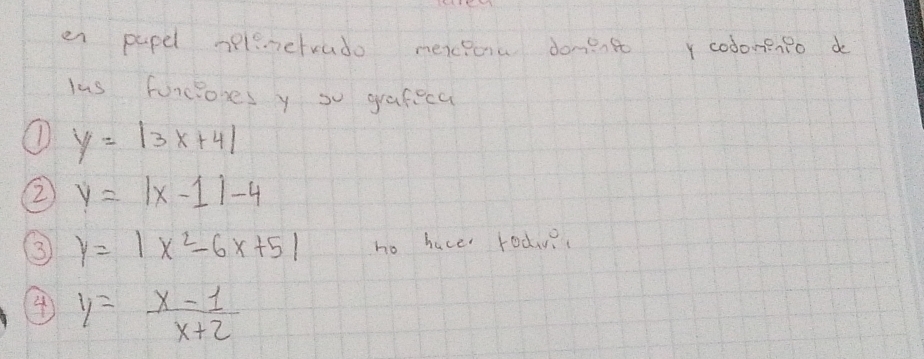 en papel milimetrado menciona dominio y codominio de
las funciones y su grafica
① y = |3x+4|
② y = |x-1|-4
③ y = |x²-6x+5| no hacer todavi
④ y = x-1 / x+2